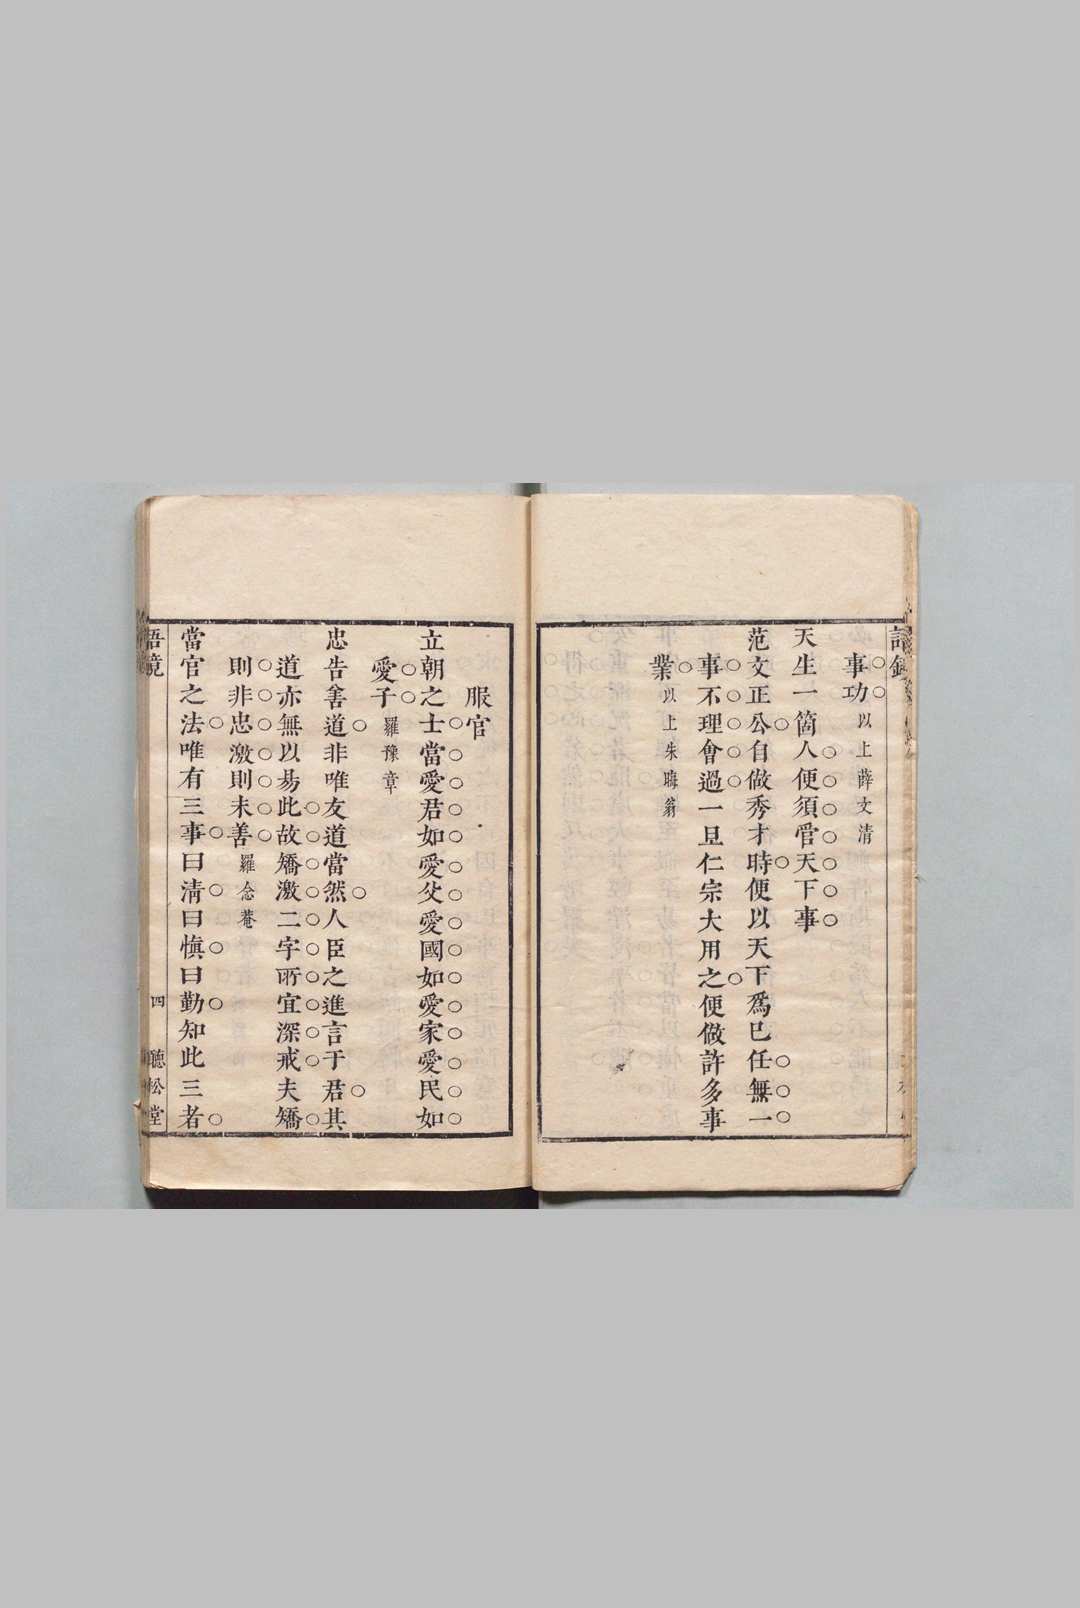 事功以上薛文清
天生一箇人便須管天下事
范文正公自做秀才時便以天下爲己任無一
事不理會過一旦仁宗大用之便做許多事
業以上朱晦翁
服官
立朝之士當愛君如愛父愛國如愛家愛民如
愛子羅豫章
忠告善道非唯友道當然人臣之進言于君其
道亦無以易此故矯激二字所宜深戒夫矯
則非忠激則未善羅念菴
當官之法唯有三事曰清曰慎曰勤知此三者
四
聽松堂